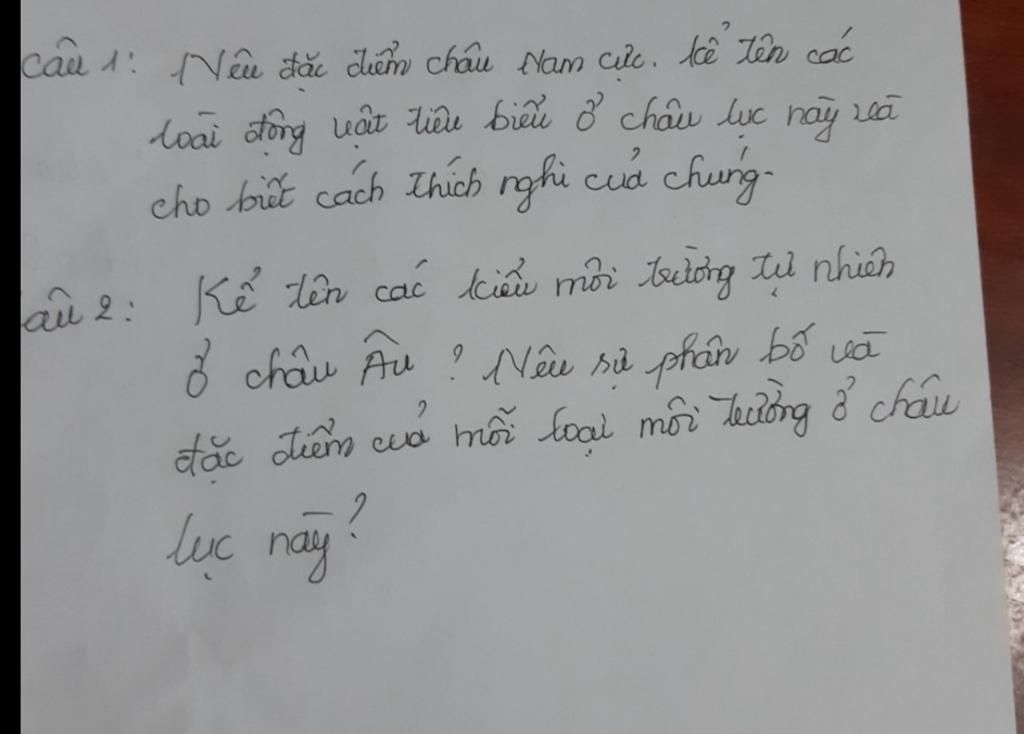 Câu 1: Nêu đặc điểm châu Nam cực. kể tên các
loài động vật tiêu biểu ở châu lục này và
cho biết cách thích nghi của chúng.
âu 2: Kể tên các kiểu môi trường tự nhiên
ở châu Âu? Nêu sự phân bố và
đặc điểm của mỗi loại môi trường ở châu
lục này?